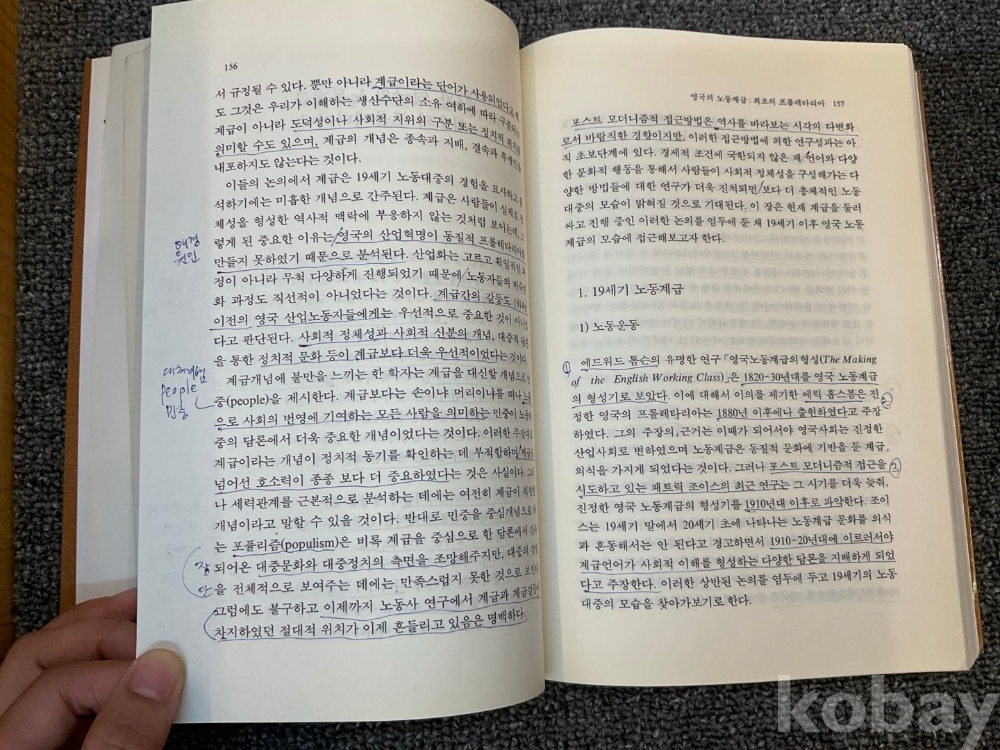 156
서 규정될 수 있다. 뿐만 아니라 계급이라는 단어가 사용되었다고 해
도 그것은 우리가 이해하는 생산수단의 소유 여하에 따라 구분되는
계급이 아니라 도덕성이나 사회적 지위의 구분 또는 정치적 위치를
의미할 수도 있으며, 계급의 개념은 종속과 지배, 결속과
내포하지도 않는다는 것이다.
이들의 논의에서 계급은 19세기 노동대중의 경험을 묘사하고 분
석하기에는 미흡한 개념으로 간주된다. 계급은 사람들이 실제로
체성을 형성한 역사적 맥락에 부응하지 않는 것처럼 보이는데, 그
렇게 된 중요한 이유는 영국의 산업혁명이 동질적 프롤레타리아를
만들지 못하였기 때문으로 분석된다. 산업화는 고르고 획일적인 과
정이 아니라 무척 다양하게 진행되었기 때문에 노동자들의 비숙련
화 과정도 직선적이 아니었다는 것이다. 계급간의 갈등도
이전의 영국 산업노동자들에게는 우선적으로 중요한 것이 아니었
다고 판단된다. 사회적 정체성과 사회적 신분의 개념, 대중적 담론
을 통한 정치적 문화 등이 계급보다 더욱 우선적이었다는 것이다.
계급개념에 불만을 느끼는 한 학자는 계급을 대신할 개념으로 민
중(people)을 제시한다. 계급보다는 손이냐 머리이냐를 떠나 노동
으로 사회의 번영에 기여하는 모든 사람을 의미하는 민중이 노동
중의 담론에서 더욱 중요한 개념이었다는 것이다. 이러한 주장대로
계급이라는 개념이 정치적 동기를 확인하는 데 부적합하며 계급을
넘어선 호소력이 종종 보다 더 중요하였다는 것은 사실이다. 그러
나 세력관계를 근본적으로 분석하는 데에는 여전히 계급이 적절한
개념이라고 말할 수 있을 것이다. 반대로 민중을 중심개념으로
는 포퓰리즘(populism)은 비록 계급을 중심으로 한 담론에서
되어온 대중문화와 대중정치의 측면을 조망해주지만, 대중의 경험
을 전체적으로 보여주는 데에는 만족스럽지 못한 것으로 보인다.
그럼에도 불구하고 이제까지 노동사 연구에서 계급과 계급갈등이
차지하였던 절대적 위치가 이제 흔들리고 있음은 명백하다.
배경
원인
대체개념
people
민중
장
단
영국의 노동계급 : 최초의 프롤레타리아 157
포스트 모더니즘적 접근방법은 역사를 바라보는 시각의 다변화
로서 바람직한 경향이지만, 이러한 접근방법에 의한 연구성과는 아
직 초보단계에 있다. 경제적 조건에 국한되지 않은 채 언어와 다양
한 문화적 행동을 통해서 사람들이 사회적 정체성을 구성해가는 다
양한 방법들에 대한 연구가 더욱 진척되면 보다 더 총체적인 노동
대중의 모습이 밝혀질 것으로 기대된다. 이 장은 현재 계급을 둘러
싸고 진행 중인 이러한 논의를 염두에 둔 채 19세기 이후 영국 노동
계급의 모습에 접근해보고자 한다.
1. 19세기 노동계급
1) 노동운동
① 에드워드 톰슨의 유명한 연구『영국노동계급의 형성(The Making
of the English Working Class)』은 1820-30년대를 영국 노동계급
의 형성기로 보았다. 이에 대해서 이의를 제기한 에릭 홉스봄은 진
②
정한 영국의 프롤레타리아는 1880년 이후에나 출현하였다고 주장
하였다. 그의 주장의 근거는 이때가 되어서야 영국사회는 진정한
산업사회로 변하였으며 노동계급은 동질적 문화에 기반을 둔 계급
의식을 가지게 되었다는 것이다. 그러나 포스트 모더니즘적 접근을
③
시도하고 있는 패트릭 조이스의 최근 연구는 그 시기를 더욱 늦춰,
진정한 영국 노동계급의 형성기를 1910년대 이후로 파악한다. 조이
스는 19세기 말에서 20세기 초에 나타나는 노동계급 문화를 의식
과 혼동해서는 안 된다고 경고하면서 1910-20년대에 이르러서야
계급언어가 사회적 이해를 형성하는 다양한 담론을 지배하게 되었
다고 주장한다. 이러한 상반된 논의를 염두에 두고 19세기의 노동
대중의 모습을 찾아가보기로 한다.
kobay